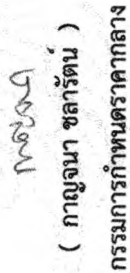 ( กาญจนา ชลารัตน์ )
กรรมการกำหนดราคากลาง